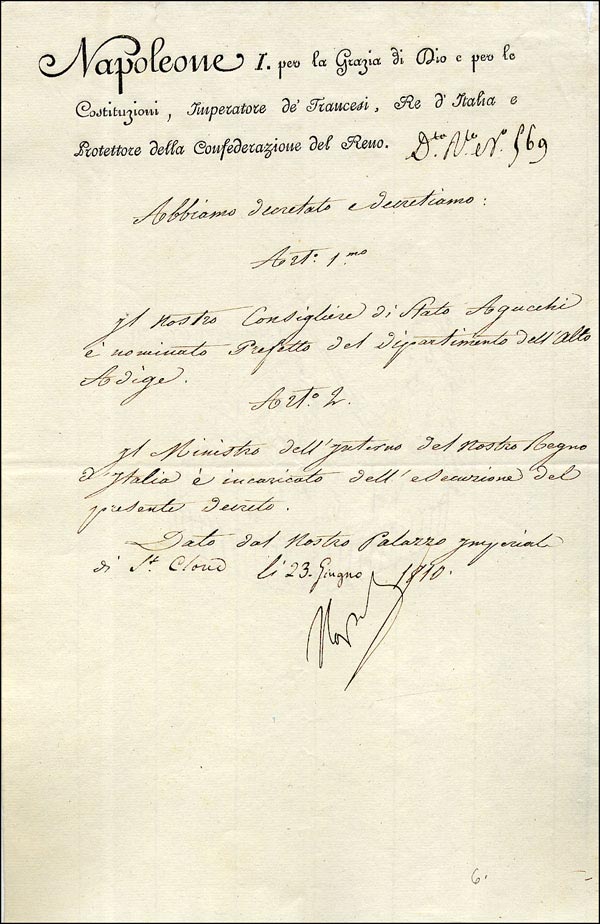 Napoleone I. per la Grazia di Dio e per le
Costituzioni, Imperatore de' Francesi, Re d'Italia e
Protettore della Confederazione del Reno. D.to N.to e N.o 569
Abbiamo decretato e decretiamo:
Art.o 1.mo
Il nostro Consigliere di Stato Agucchi
è nominato Prefetto del Dipartimento dell'Alto
Adige.
Art.o 2.
Il Ministro dell'Interno del nostro Regno
d'Italia è incaricato dell'esecuzione del
presente decreto.
Dato dal nostro Palazzo Imperiale
di St. Cloud li 23. Giugno 1810.
Nap
6.